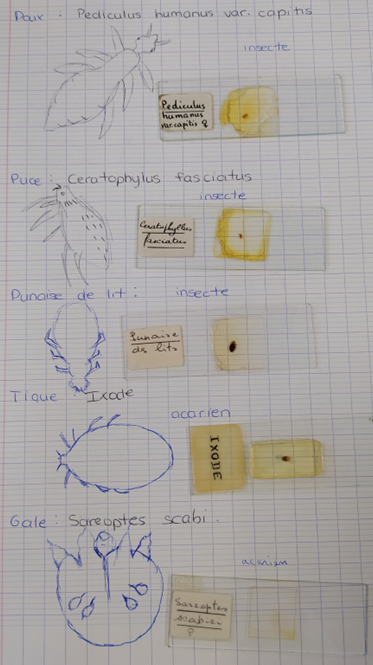 Poux : Pediculus humanus var. capitis
insecte
Pediculus
humanus
var. capitis ♀
Puce : Ceratophylus fasciatus
insecte
Ceratophyllus
fasciatus
Punaise de lit : insecte
Punaise
des lits
Tique Ixode
acarien
IXODE
Gale : Sareoptes scabi.
acarien
Sarcoptes
scabiei
♀